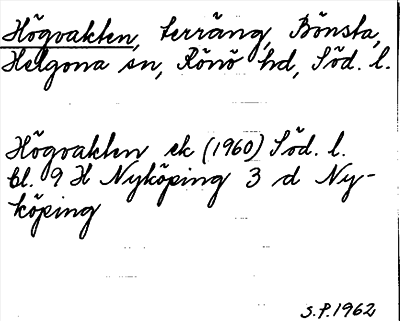 Högvakten, terräng, Bönsta,
Helgona sn, Rönö hd, Söd. l.
Högvakten ek (1960) Söd. l.
bl. 9 H Nyköping 3 d Ny-
köping
S.P. 1962